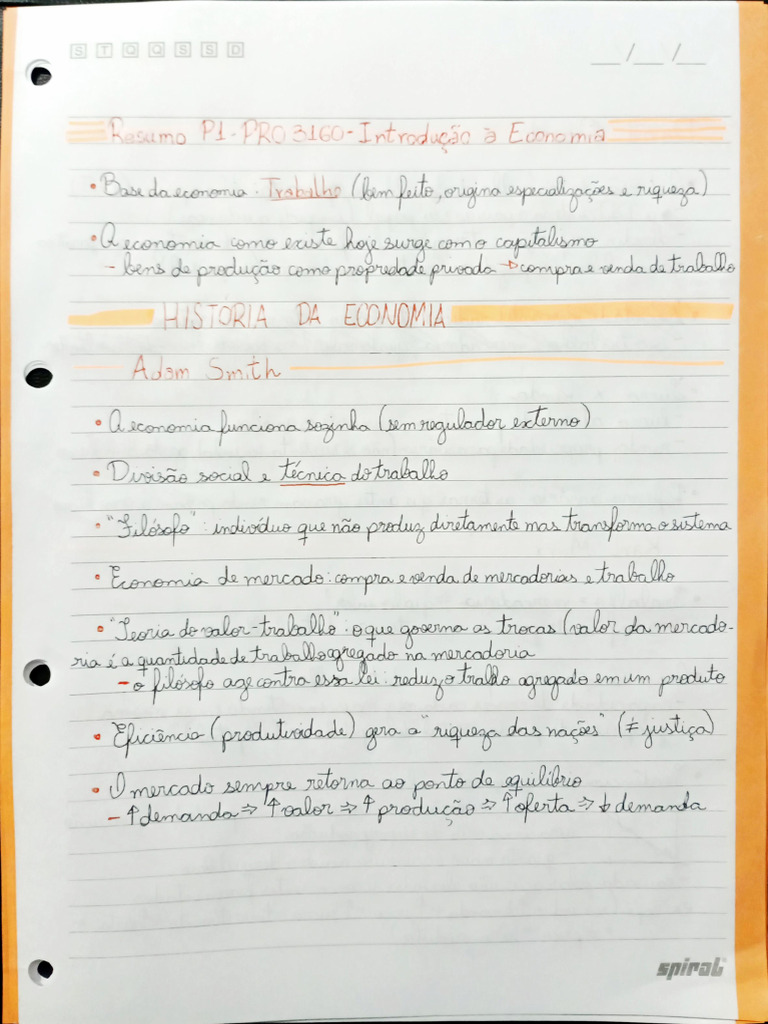 S T Q Q S S D
__/__/__
Resumo P1 - PRO 3160 - Introdução à Economia
• Base da economia. Trabalho (bem feito, origina especializações e riqueza)
• A economia como existe hoje surge com o capitalismo
- bens de produção como propriedade privada → compra e venda de trabalho
HISTÓRIA DA ECONOMIA
Adam Smith
• A economia funciona sozinha (sem regulador externo)
• Divisão social e técnica do trabalho
• "Filósofo": indivíduo que não produz diretamente mas transforma o sistema
• Economia de mercado: compra e venda de mercadorias e trabalho
• "Teoria do valor-trabalho": o que governa as trocas (valor da mercado-
ria é a quantidade de trabalho agregado na mercadoria
- o filósofo age contra essa lei: reduz o tralho agregado em um produto
• Eficiência (produtividade) gera a "riqueza das nações" (≠ justiça)
• O mercado sempre retorna ao ponto de equilíbrio
- ↑demanda ⇒ ↑valor ⇒ ↑produção ⇒ ↑oferta ⇒ ↓demanda
spiral